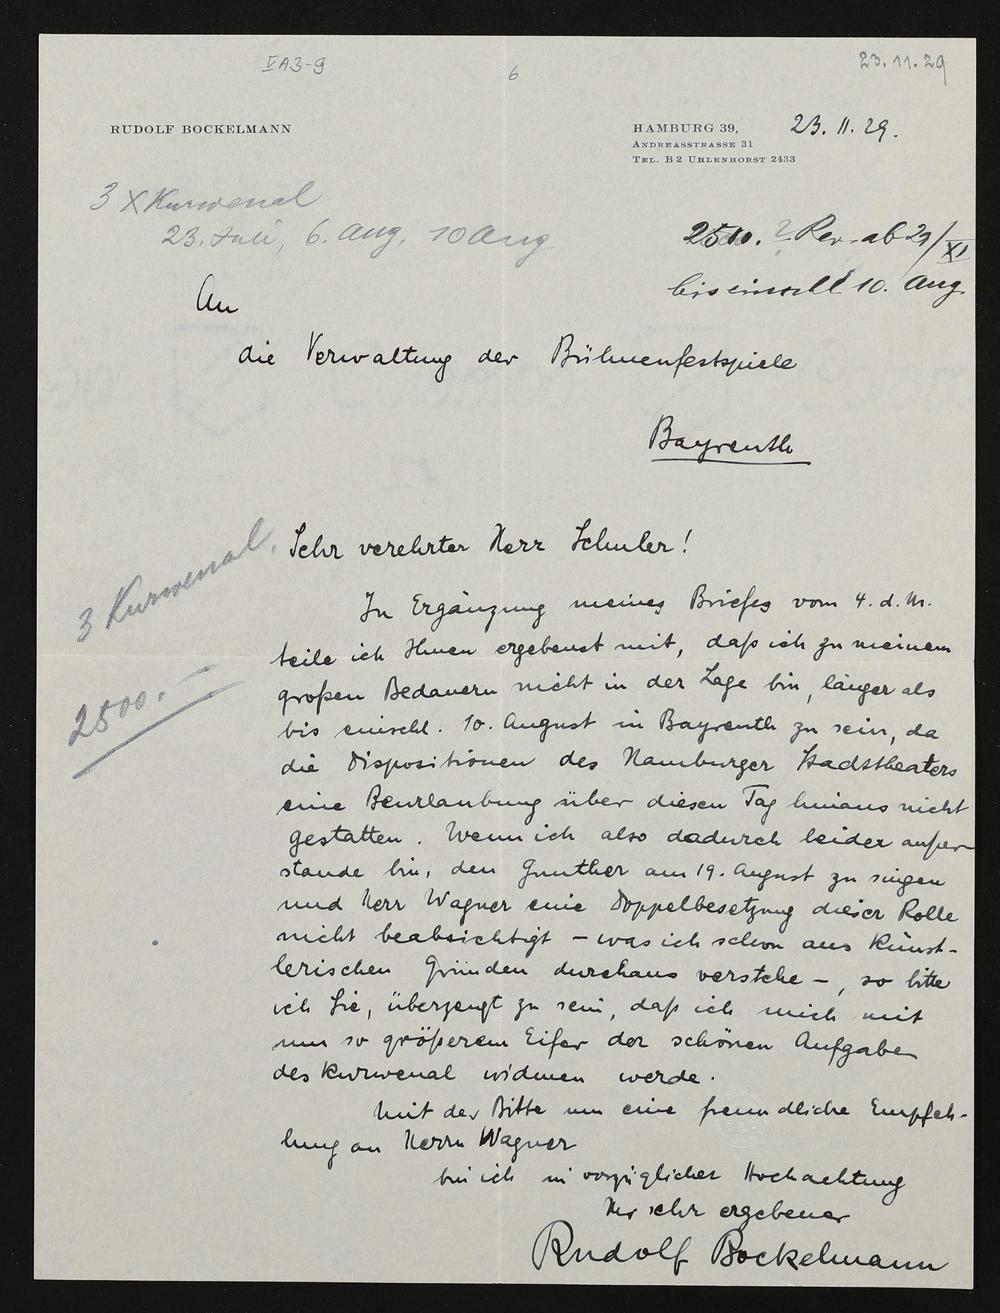 VA3-9
6
23.11.29
RUDOLF BOCKELMANN
HAMBURG 39, 23. 11. 29.
ANDREASSTRASSE 31
TEL. B 2 UHLENHORST 2433
3 X Kurwenal
23. Juli, 6. Aug, 10 Aug
ab 29/XI
bis einschl 10. Aug
An
die Verwaltung der Bühnenfestspiele
Bayreuth
3 Kurwenal.
2500.-
Sehr verehrter Herr Schuler!
In Ergänzung meines Briefes vom 4. d. M.
teile ich Ihnen ergebenst mit, daß ich zu meinem
großen Bedauern nicht in der Lage bin, länger als
bis einschl. 10. August in Bayreuth zu sein, da
die Dispositionen des Hamburger Stadttheaters
eine Beurlaubung über diesen Tag hinaus nicht
gestatten. Wenn ich also dadurch leider außer-
stande bin, den Gunther am 19. August zu singen
und Herr Wagner eine Doppelbesetzung dieser Rolle
nicht beabsichtigt – was ich schon aus künst-
lerischen Gründen durchaus verstehe –, so bitte
ich Sie, überzeugt zu sein, daß ich mich mit
um so größerem Eifer der schönen Aufgabe
des Kurwenal widmen werde.
Mit der Bitte um eine freundliche Empfeh-
lung an Herrn Wagner
bin ich in vorzüglicher Hochachtung
Ihr sehr ergebener
Rudolf Bockelmann